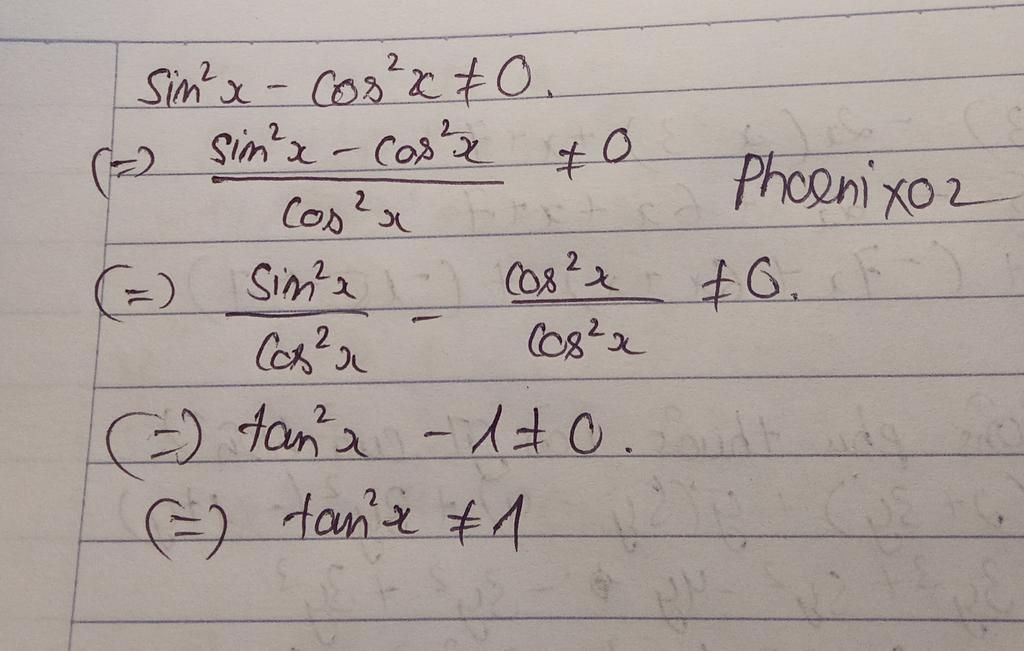 sin²x - cos²x ≠ 0.
(=) sin²x - cos²x / cos²x ≠ 0
Phoenix02
(=) sin²x / cos²x - cos²x / cos²x ≠ 0.
(=) tan²x - 1 ≠ 0.
(=) tan²x ≠ 1